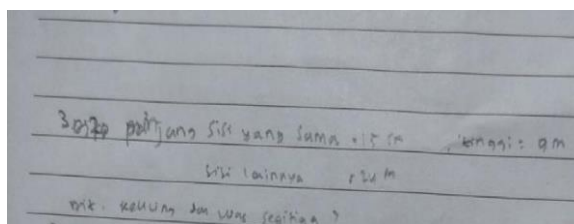 3. panjang sisi yang sama = 15 m, tinggi = 9 m
sisi lainnya = 24 m
dit. keliling dan luas segitiga ?